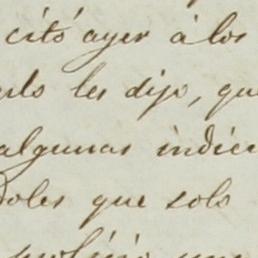 citó ayer á los
les dijo, que
algunas indici
doles que solo